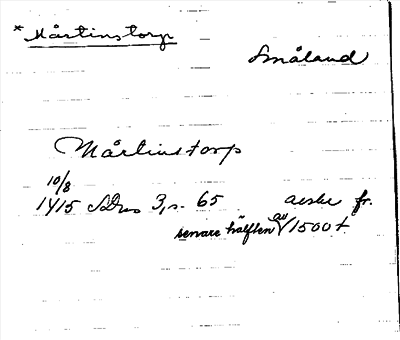 *Mårtinstorp
Småland
Mårtinstorp
10/8
1415 SDns 3, s. 65 avskr fr.
senare hälften av 1500 t.